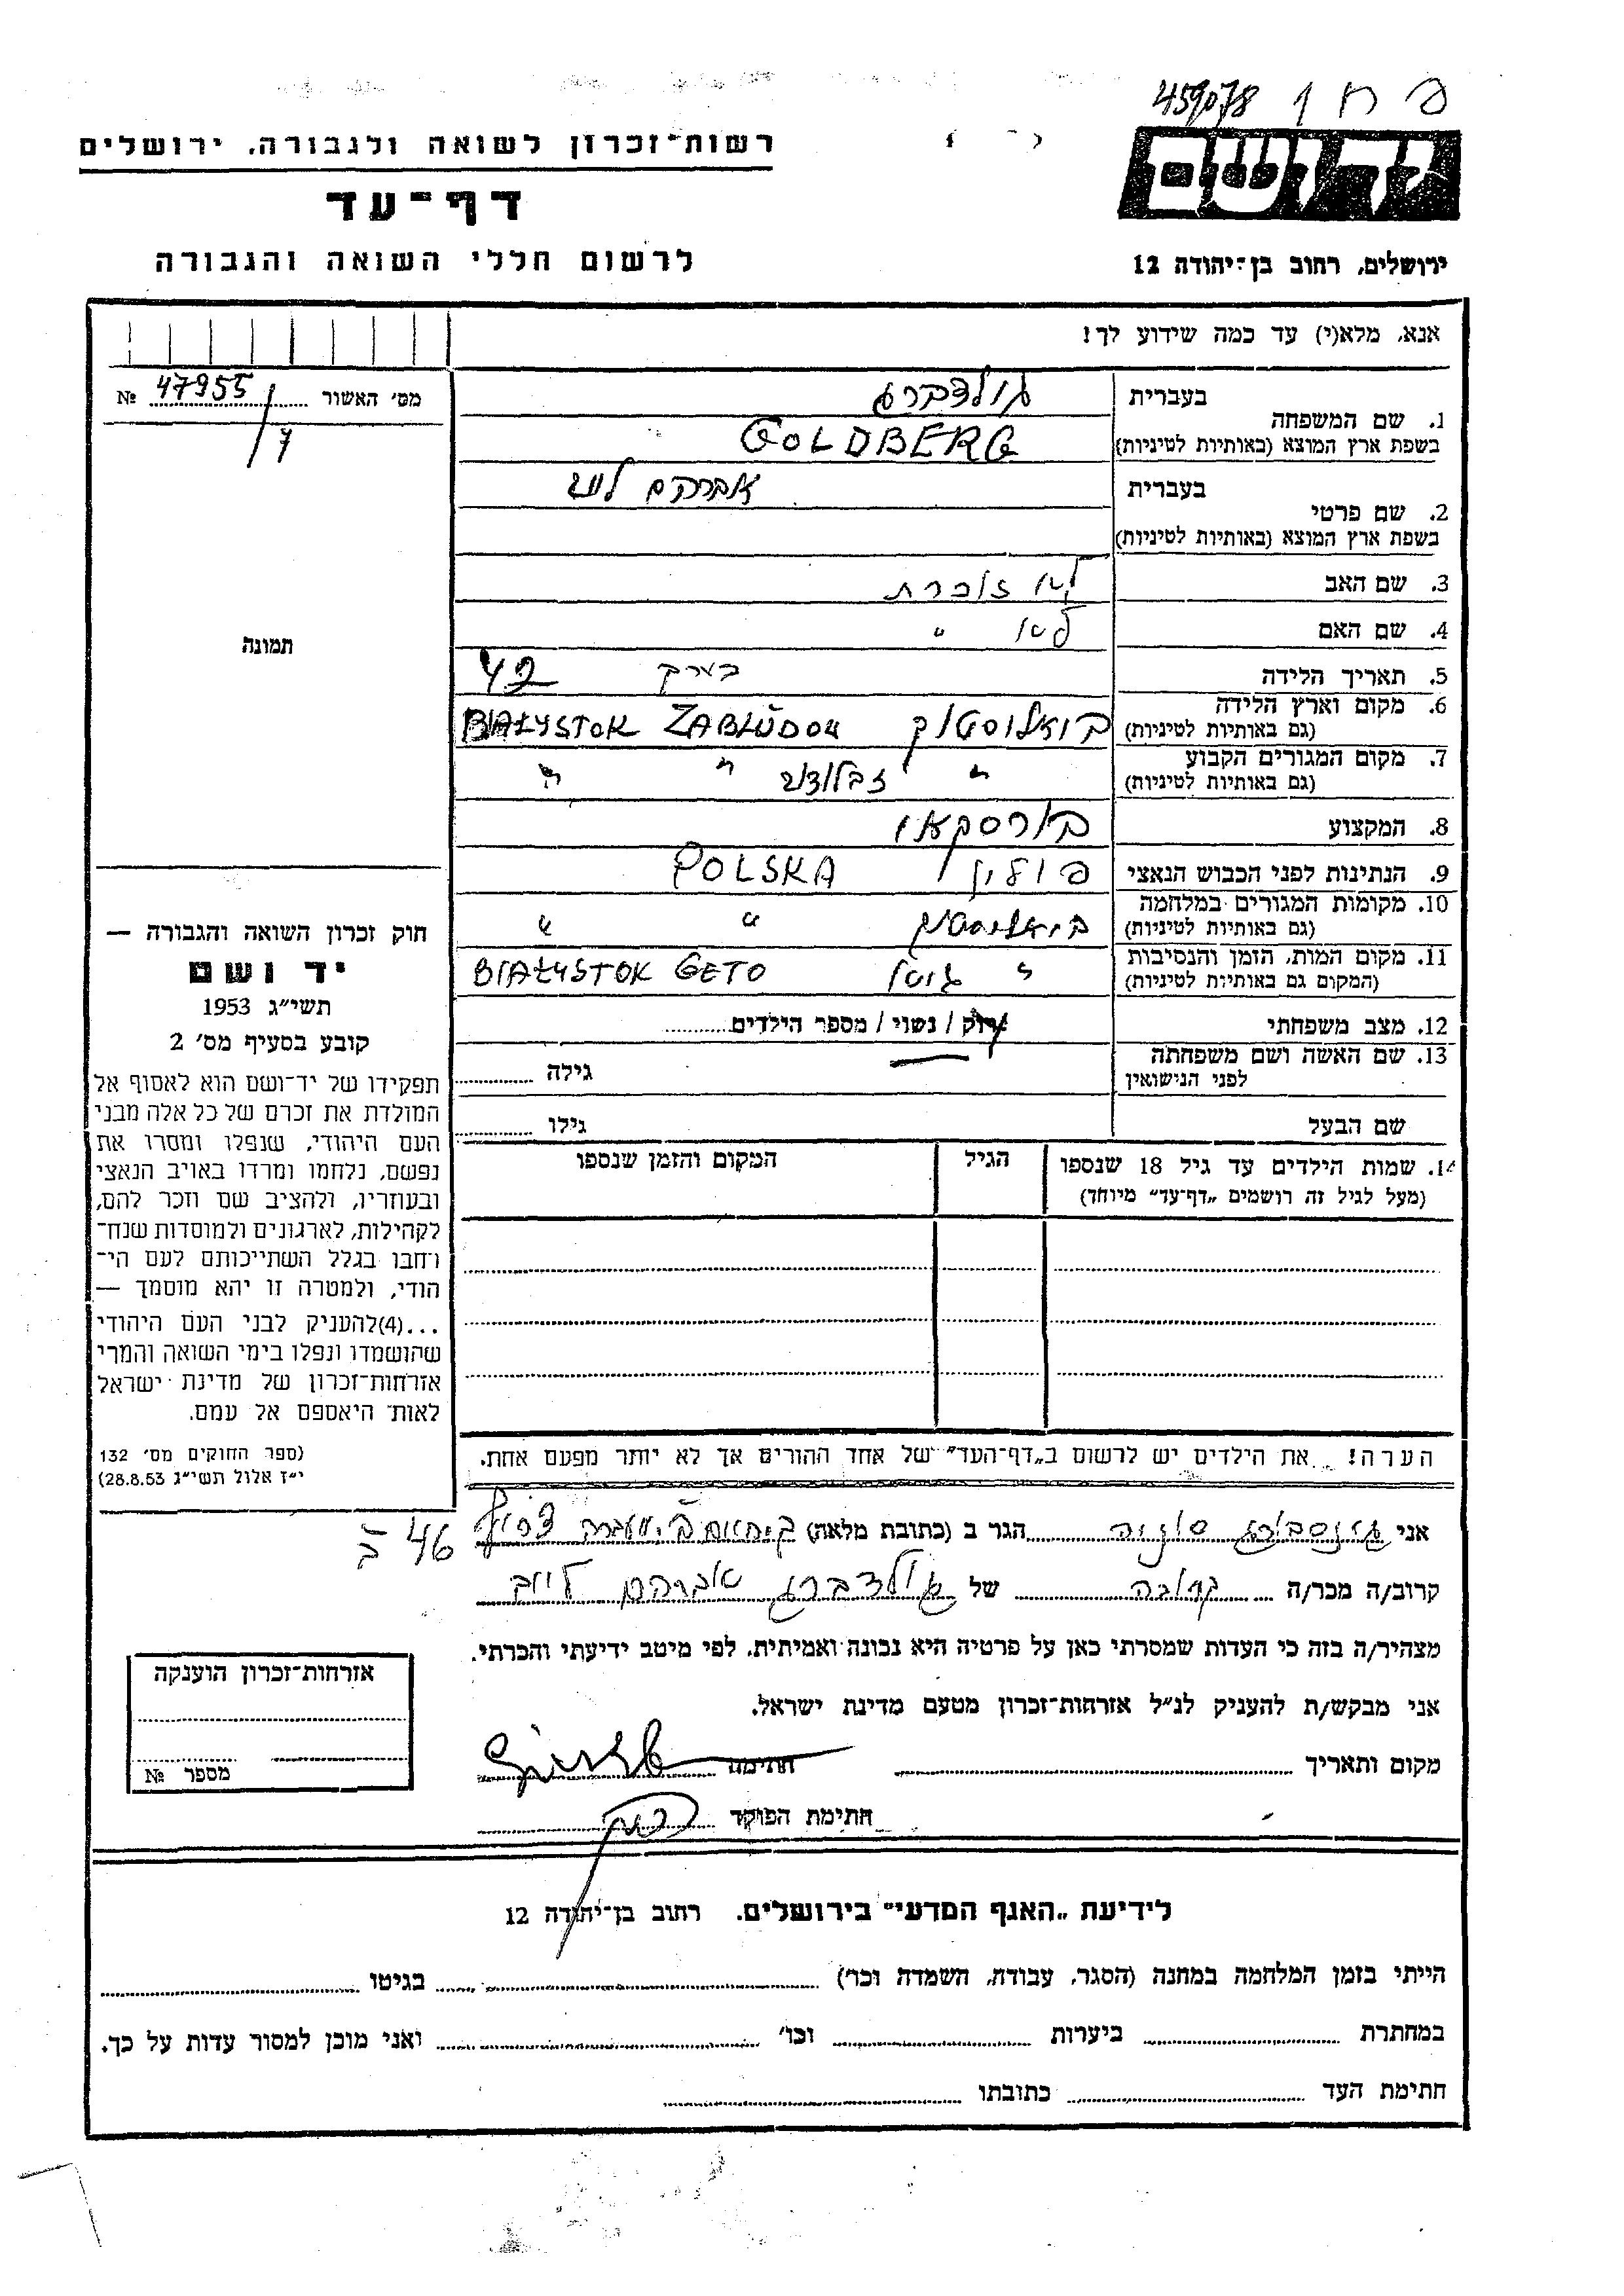 459078
רשות־זכרון לשואה ולגבורה, ירושלים
ידושם
דף־עד
לרשום חללי השואה והגבורה
ירושלים, רחוב בן־יהודה 12
אנא, מלא(י) עד כמה שידוע לך!
מס׳ האשור 47955 №
7
1. שם המשפחה
בעברית גולדברג
בשפת ארץ המוצא (באותיות לטיניות) GOLDBERG
2. שם פרטי
בעברית אברהם
בשפת ארץ המוצא (באותיות לטיניות)
3. שם האב לא זוכרת
4. שם האם לא "
תמונה
5. תאריך הלידה בערך 42
6. מקום וארץ הלידה
(גם באותיות לטיניות) ביאליסטוק ZABŁUDOW BIAŁYSTOK
7. מקום המגורים הקבוע
(גם באותיות לטיניות) " " "
8. המקצוע בורסקאי
9. הנתינות לפני הכבוש הנאצי פולין POLSKA
10. מקומות המגורים במלחמה
(גם באותיות לטיניות) ביאליסטוק " "
11. מקום המות, הזמן והנסיבות
(המקום גם באותיות לטיניות) " גטו BIAŁYSTOK GETO
12. מצב משפחתי רווק / נשוי / מספר הילדים
13. שם האשה ושם משפחתה
לפני הנישואין גילה
שם הבעל גילו
14. שמות הילדים עד גיל 18 שנספו
(מעל לגיל זה רושמים „דף־עד" מיוחד)
הגיל
המקום והזמן שנספו
חוק זכרון השואה והגבורה —
יד ושם
תשי״ג 1953
קובע בסעיף מס׳ 2
תפקידו של יד־ושם הוא לאסוף אל
המולדת את זכרם של כל אלה מבני
העם היהודי, שנפלו ומסרו את
נפשם, נלחמו ומרדו באויב הנאצי
ובעוזריו, ולהציב שם וזכר להם,
לקהילות, לארגונים ולמוסדות שנח־
רחבו בגלל השתייכותם לעם הי־
הודי, ולמטרה זו יהא מוסמך —
...(4)להעניק לבני העם היהודי
שהושמדו ונפלו בימי השואה והמרי
אזרחות־זכרון של מדינת ישראל
לאות היאספם אל עמם.
(ספר החוקים מס׳ 132
י״ז אלול תשי״ג 28.8.53)
הערה! את הילדים יש לרשום ב„דף־העד" של אחד ההורים אך לא יותר מפעם אחת.
אני גינסבורג סוניה הגר ב (כתובת מלאה)
46
קרוב/ה מכר/ה קרובה של גולדברג אברהם לייב
מצהיר/ה בזה כי העדות שמסרתי כאן על פרטיה היא נכונה ואמיתית, לפי מיטב ידיעתי והכרתי.
אני מבקש/ת להעניק לנ״ל אזרחות־זכרון מטעם מדינת ישראל.
מקום ותאריך חתימה
חתימת הפוקד
אזרחות־זכרון הוענקה
מספר №
לידיעת „האגף המדעי" בירושלים, רחוב בן־יהודה 12
הייתי בזמן המלחמה במחנה (הסגר, עבודה, השמדה וכו׳) בגיטו
במחתרת ביערות וכו׳ ואני מוכן למסור עדות על כך.
חתימת העד כתובתו